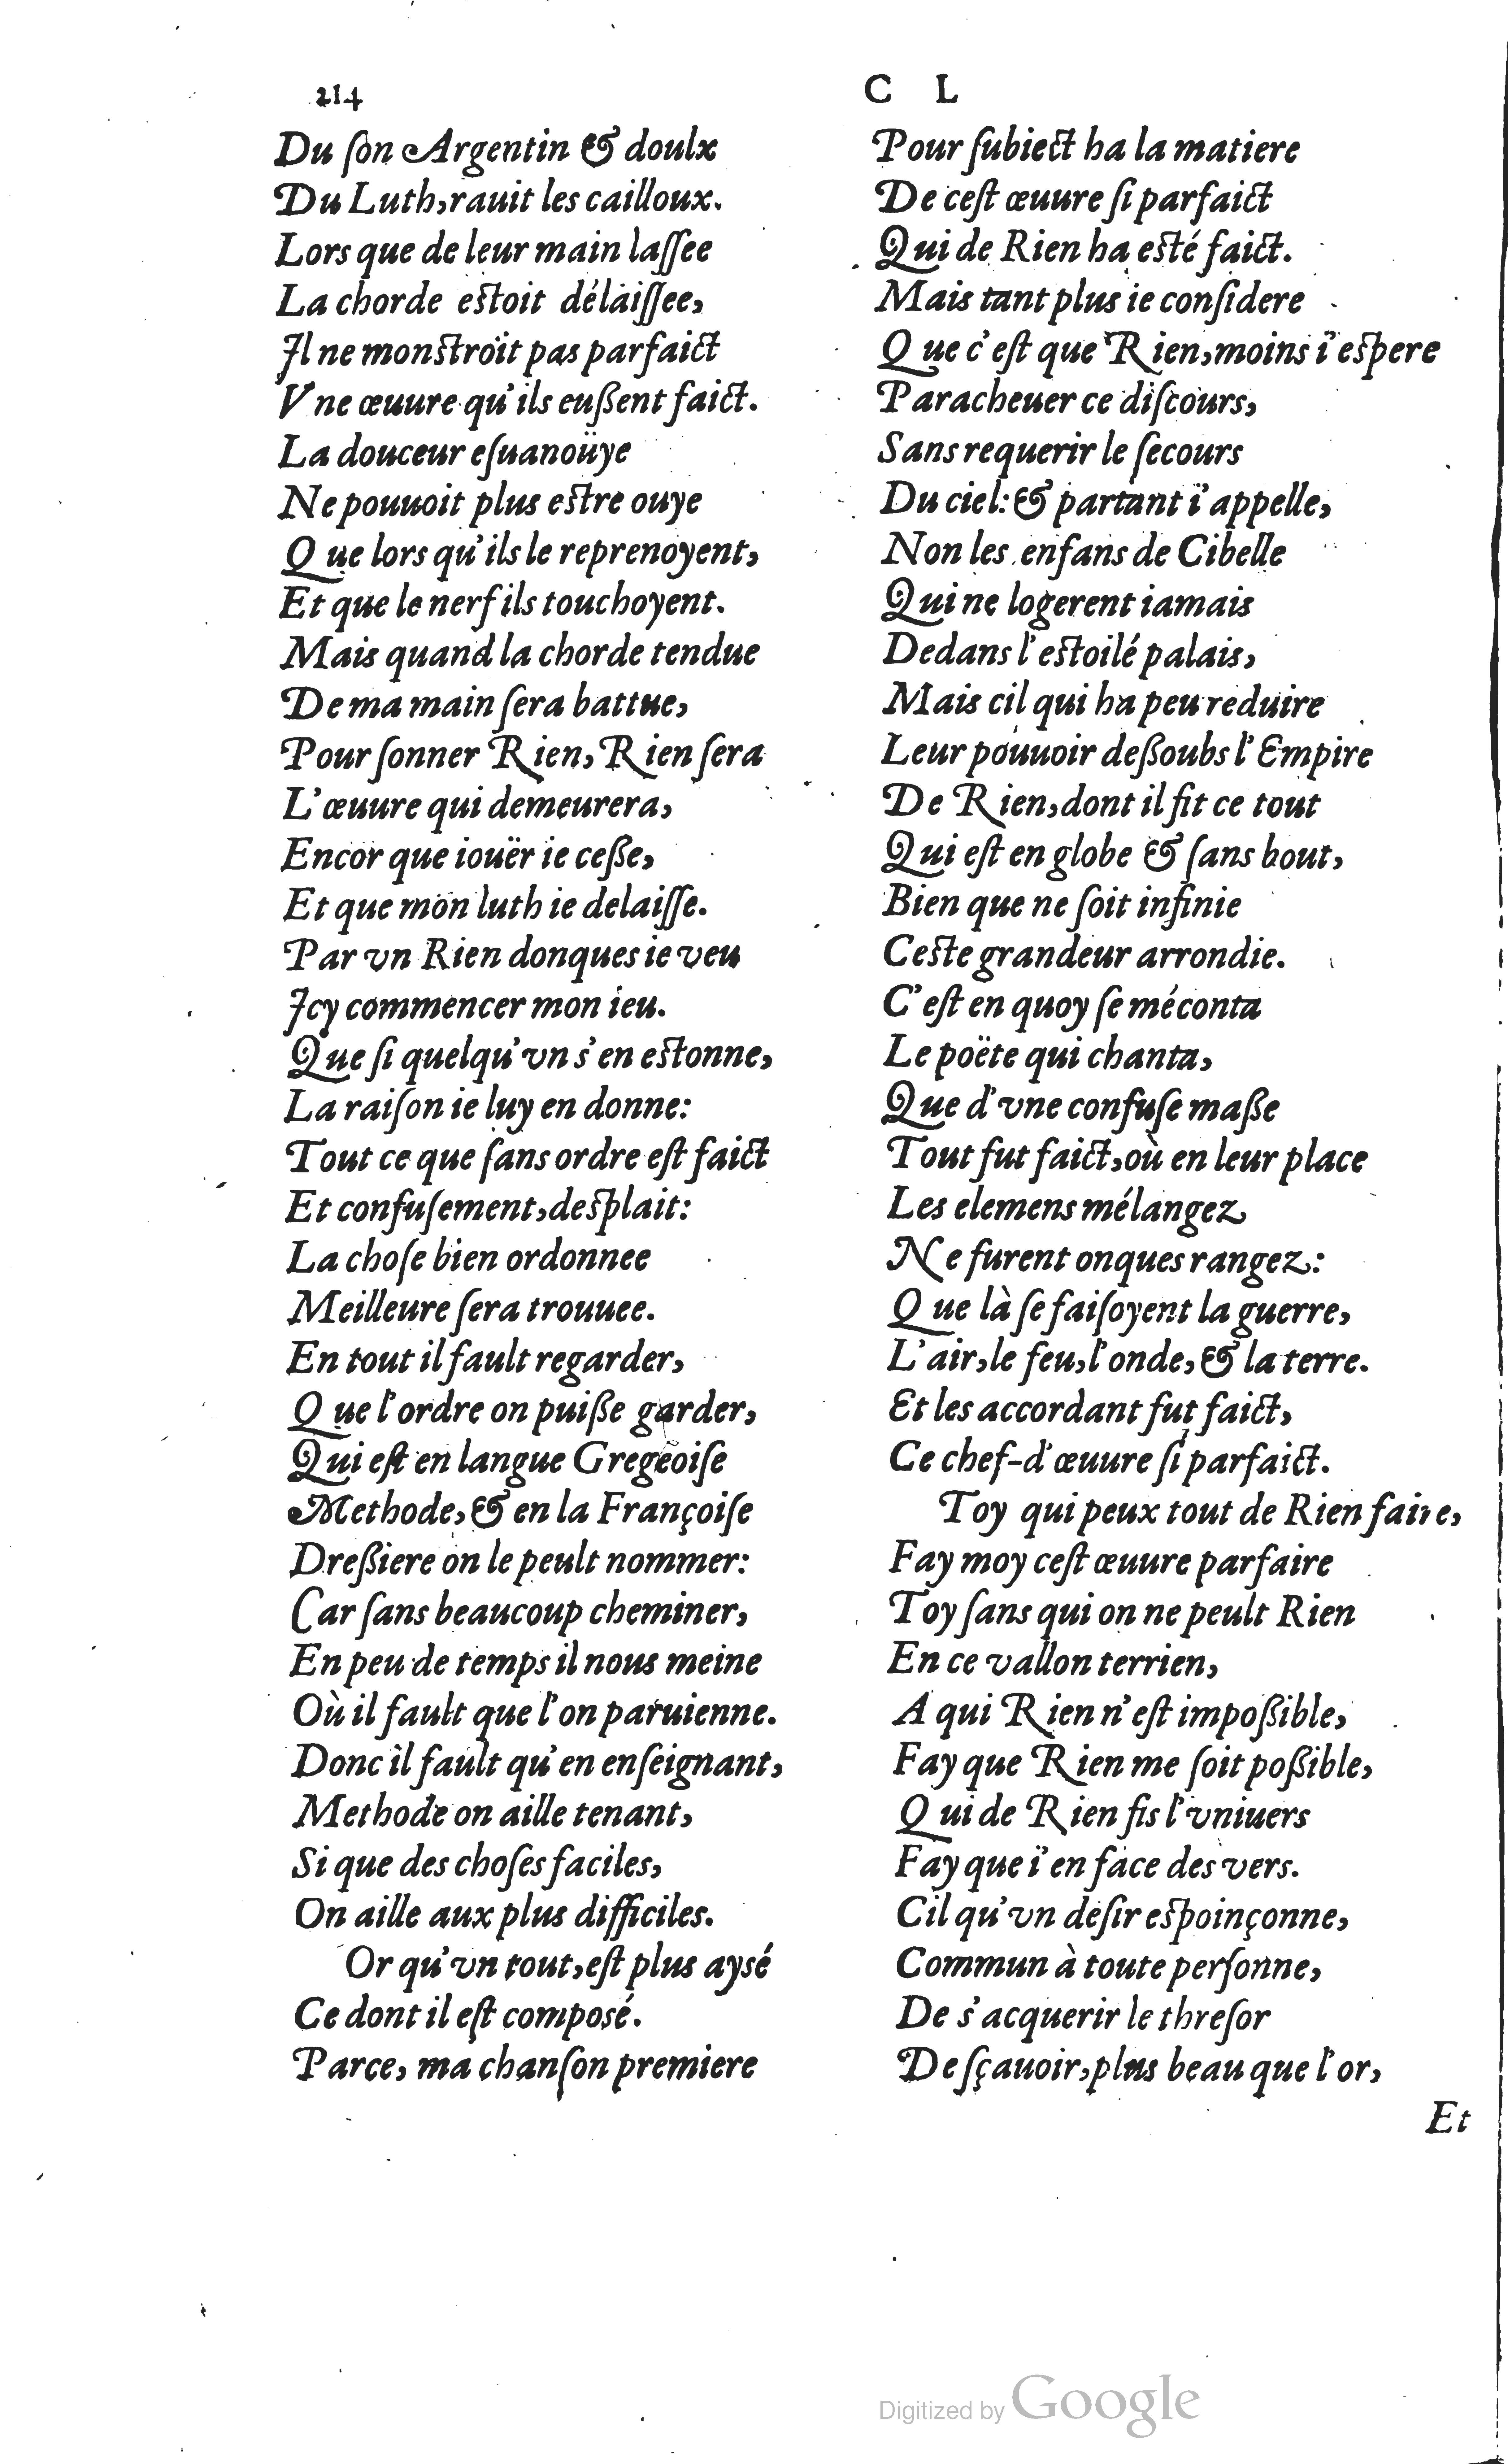 214
C L
Du ſon Argentin & doulx
Du Luth, rauit les cailloux.
Lors que de leur main laſſee
La chorde eſtoit délaiſſee,
Il ne monſtroit pas parfaict
Vne œuure qu'ils eußent faict.
La douceur eſuanoüye
Ne pouuoit plus eſtre ouye
Que lors qu'ils le reprenoyent,
Et que le nerf ils touchoyent.
Mais quand la chorde tendue
De ma main ſera battue,
Pour ſonner Rien, Rien ſera
L'œuure qui demeurera,
Encor que iouër ie ceße,
Et que mon luth ie delaiſſe.
Par vn Rien donques ie veu
Icy commencer mon ieu.
Que ſi quelqu'vn s'en eſtonne,
La raiſon ie luy en donne:
Tout ce que ſans ordre eſt faict
Et confuſement, deſplait:
La choſe bien ordonnee
Meilleure ſera trouuee.
En tout il fault regarder,
Que l'ordre on puiße garder,
Qui eſt en langue Gregeoiſe
Methode, & en la Françoiſe
Dreßiere on le peult nommer:
Car ſans beaucoup cheminer,
En peu de temps il nous meine
Où il fault que l'on paruienne.
Donc il fault qu'en enſeignant,
Methode on aille tenant,
Si que des choſes faciles,
On aille aux plus difficiles.
Or qu'vn tout, eſt plus aysé
Ce dont il eſt composé.
Parce, ma chanſon premiere
Pour ſubiect ha la matiere
De ceſt œuure ſi parfaict
Qui de Rien ha eſté faict.
Mais tant plus ie conſidere
Que c'eſt que Rien, moins i'eſpere
Paracheuer ce diſcours,
Sans requerir le ſecours
Du ciel: & partant i'appelle,
Non les enfans de Cibelle
Qui ne logerent iamais
Dedans l'eſtoilé palais,
Mais cil qui ha peu reduire
Leur pouuoir deßoubs l'Empire
De Rien, dont il fit ce tout
Qui eſt en globe & ſans bout,
Bien que ne ſoit infinie
Ceſte grandeur arrondie.
C'eſt en quoy ſe méconta
Le poëte qui chanta,
Que d'vne confuſe maße
Tout fut faict, où en leur place
Les elemens mélangez
Ne furent onques rangez:
Que là ſe faiſoyent la guerre,
L'air, le feu, l'onde, & la terre.
Et les accordant fut faict,
Ce chef-d'œuure ſi parfaict.
Toy qui peux tout de Rien faire,
Fay moy ceſt œuure parfaire
Toy ſans qui on ne peult Rien
En ce vallon terrien,
A qui Rien n'eſt impoßible,
Fay que Rien me ſoit poßible,
Qui de Rien fis l'vniuers
Fay que i'en face des vers.
Cil qu'vn deſir eſpoinçonne,
Commun à toute perſonne,
De s'acquerir le threſor
De ſçauoir, plus beau que l'or,
Et
Digitized by Google